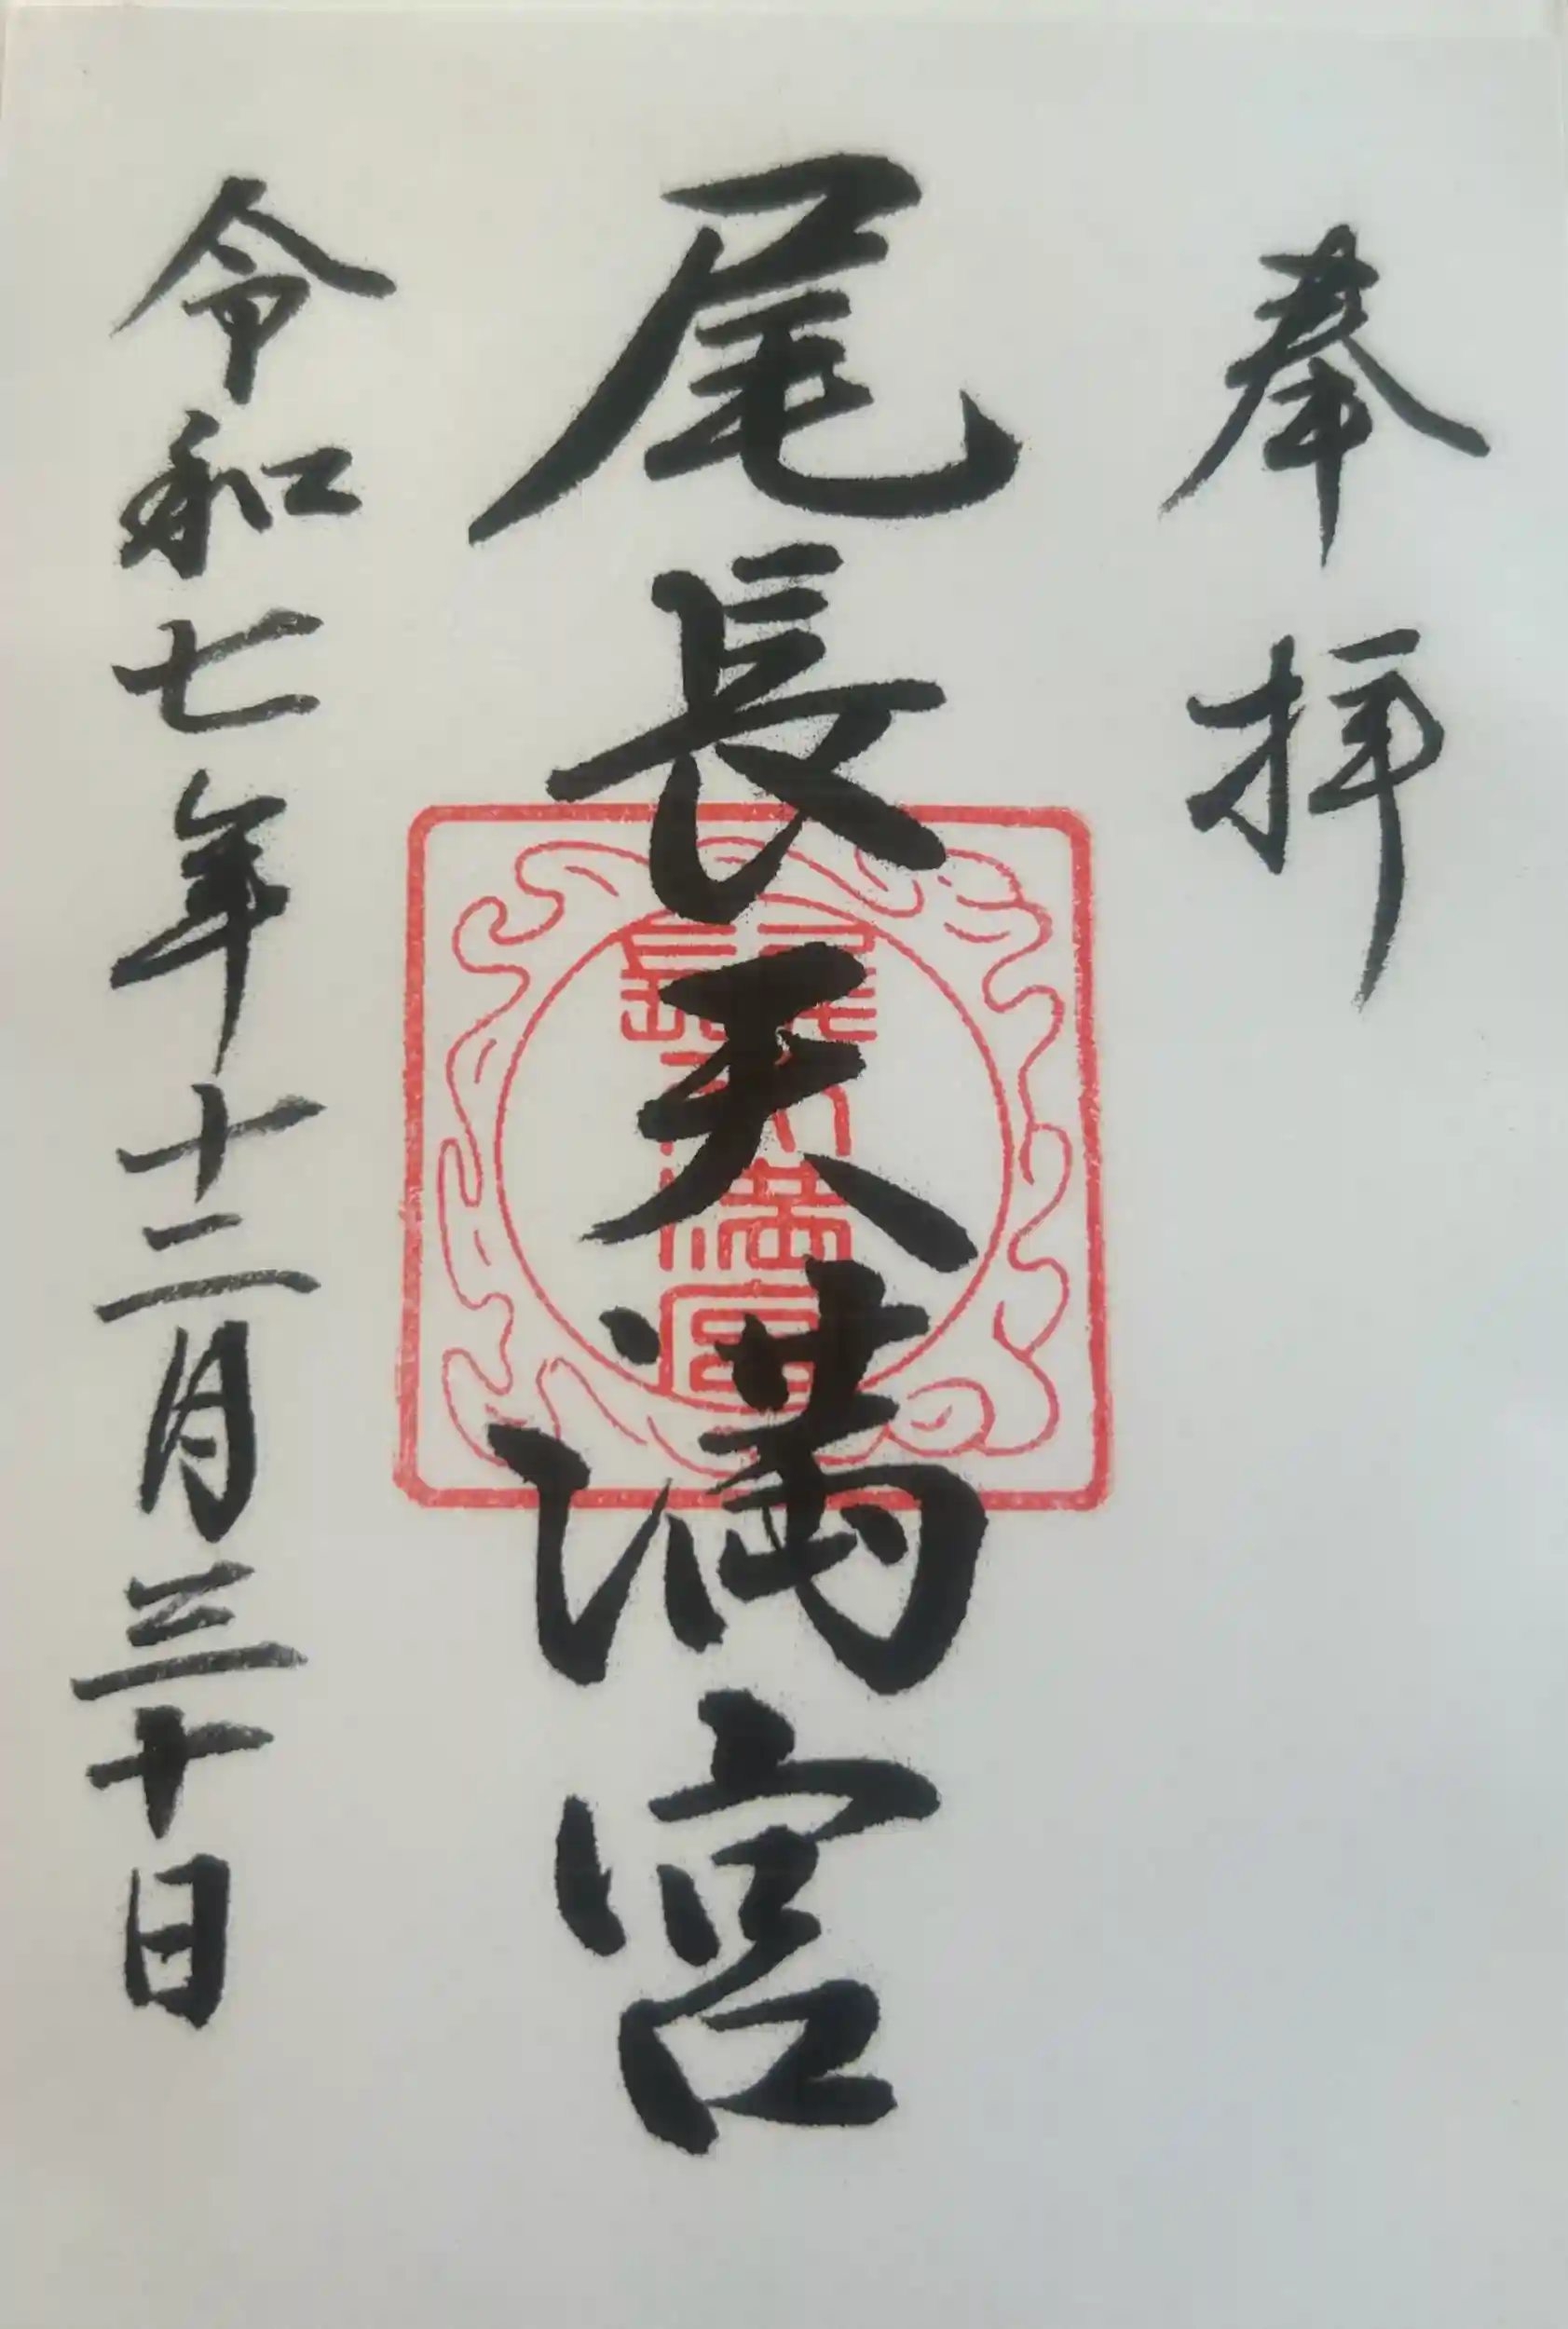 奉拝
尾長天満宮
尾長天満宮
令和七年十二月三十日